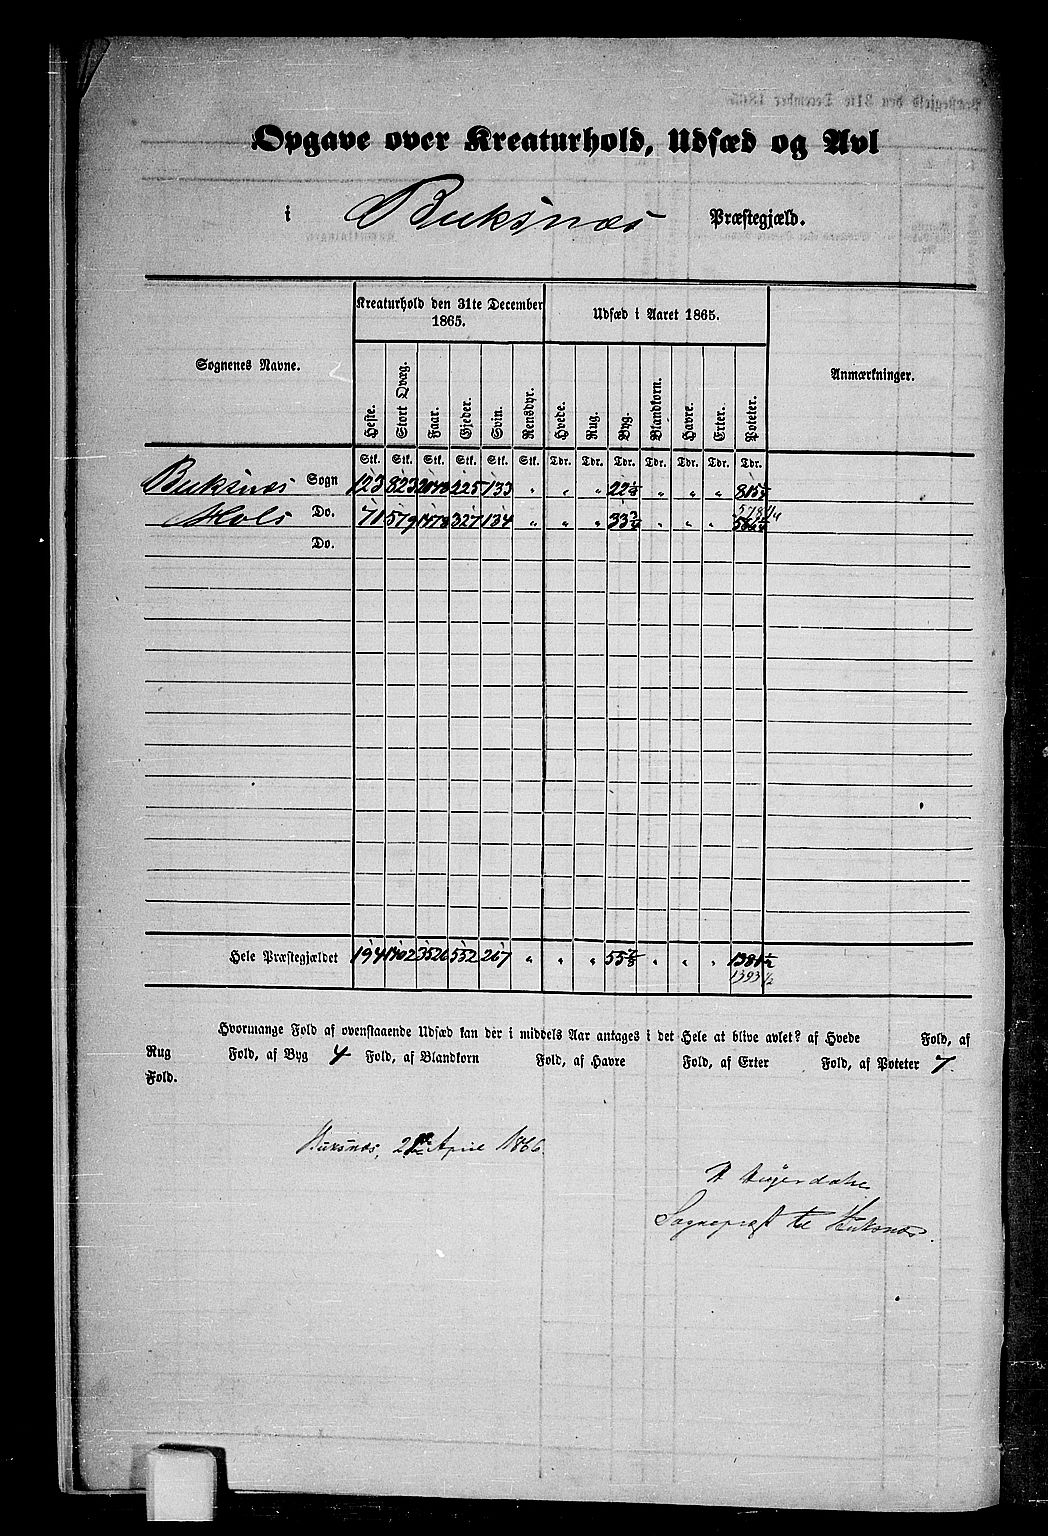 Opgave over Kreaturhold, Udsæd og Avl
i Buksnæs Præstegjæld.
Sognenes Navne. Kreaturhold den 31te December 1865. Udsæd i Aaret 1865. Anmærkninger.
Heste. Stort Qvæg. Faar. Gjeder. Svin. Rensdyr. Hvede. Rug. Byg. Blandkorn. Havre. Erter. Poteter.
Stk. Stk. Stk. Stk. Stk. Stk. Tdr. Tdr. Tdr. Tdr. Tdr. Tdr. Tdr.
Buksnæs Sogn 123 823 2048 225 133 " " " 22 1/8 " " " 815
578 1/4
Hols Do. 71 579 1478 327 134 " " " 33 3/4 " " "
Do.
Hele Præstegjældet 194 1402 3526 552 267 " " " 55 7/8 " " " 1381 1/2
1393 1/2
Hvormange Fold af ovenstaaende Udsæd kan der i middels Aar antages i det Hele at blive avlet? af Hvede Fold, af
Rug Fold, af Byg 4 Fold, af Blandkorn Fold, af Havre Fold, af Erter Fold, af Poteter 7
Fold.
Buksnæs, April 1866.
Sognepræst til Buksnæs.